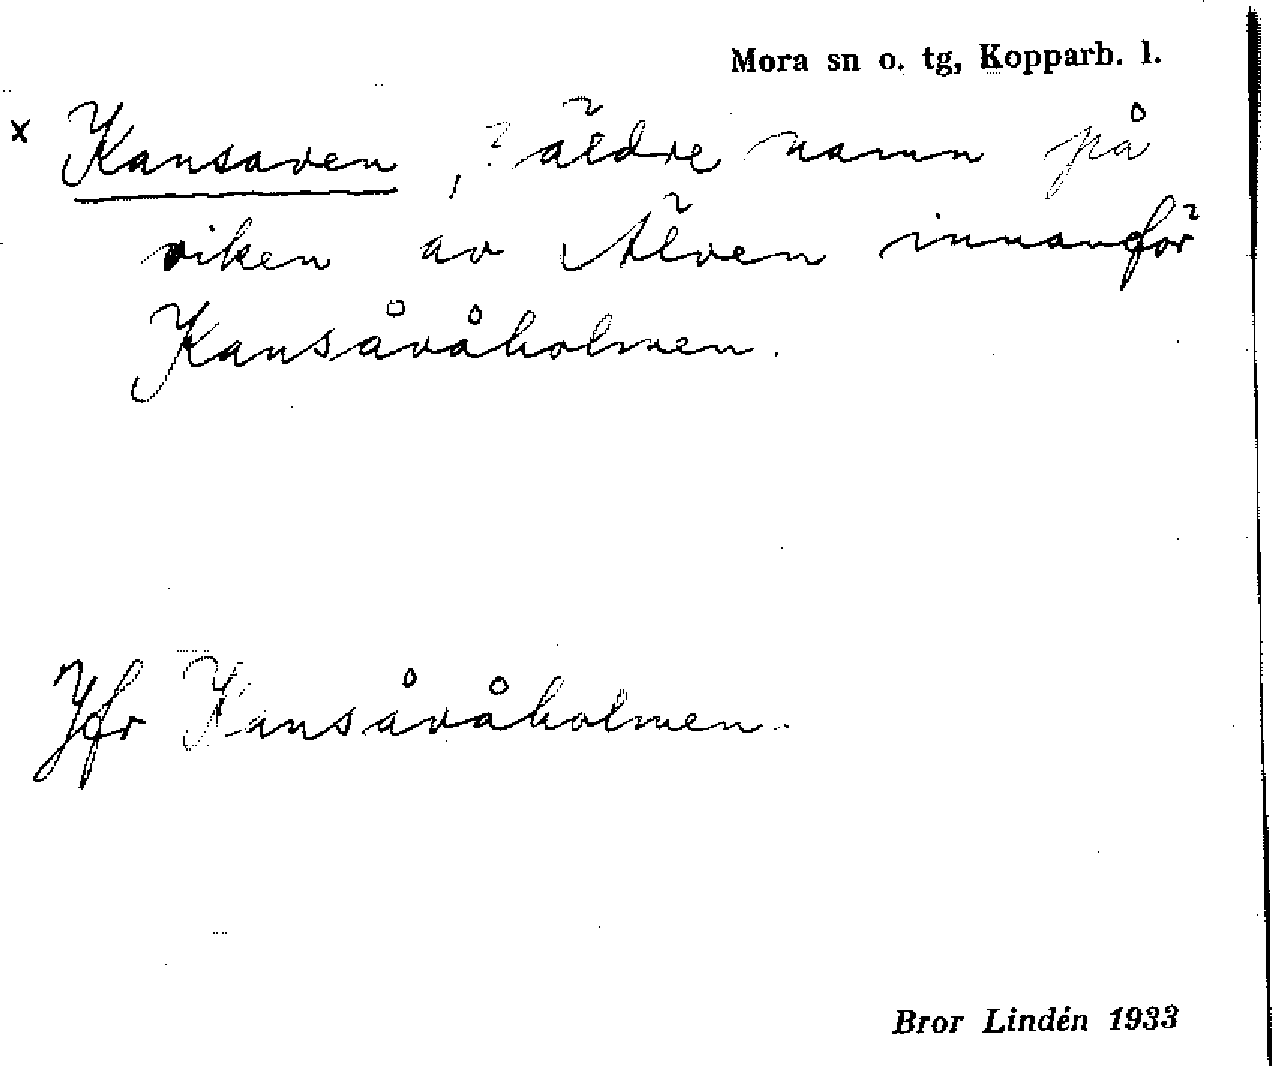 Mora sn o. tg, Kopparb. l.
x Kansaven, ? äldre namn på
viken av Älven innanför
Kansåvåholmen.
Jfr Kansåvåholmen.
Bror Lindén 1933